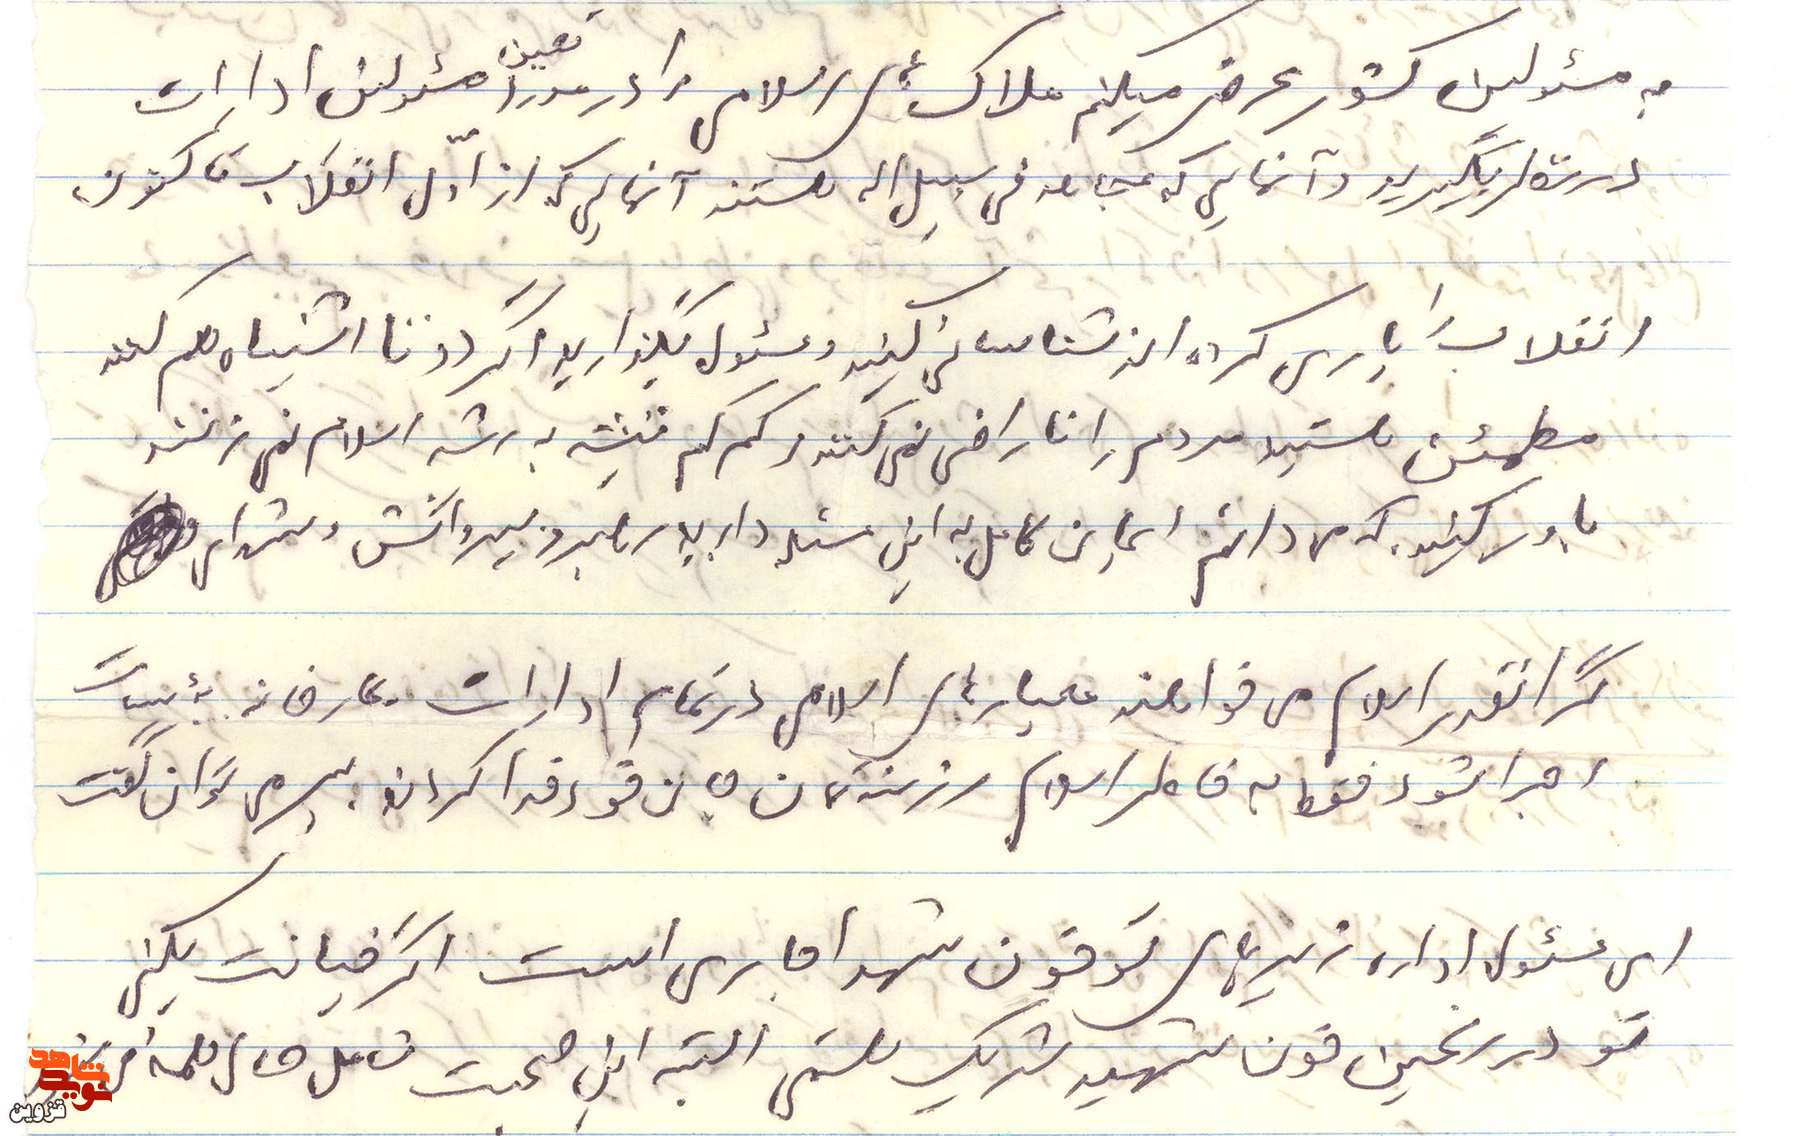 به مسئولین کشور عرض میکنم ملاک های اسلامی را در مورد تعین مسئولین ادارات
در نظر بگیرید و آنهایی که مجاهد فی سبیل اله هستند آنهایی که از اوّل انقلاب تا کنون
انقلاب را یاری کرده اند شناسائی کنید و مسئول بگذارید اگر دو تا اشتباه هم کنند
مطمئن هستید مردم را ناراضی نمی کنند و کم کم تیشه به ریشه اسلام نمی زنند
باور کنید که می دانم ایمان کامل به این مسئله دارید رهبر و پیروانش و شهدای
گرانقدر اسلام می خواهند معیارهای اسلامی در تمام ادارات
اجرا شود فقط به خاطر اسلام رزمندگان جان خود فدا کردند پس می توان گفت
ای مسئول اداره زیر پای تو خون شهدا جاری است اگر خیانت بکنی
تو در ریختن خون شهید شریک هستی البته این صحبت شامل حال همه نمی شود
شاهد
نوید
قزوین